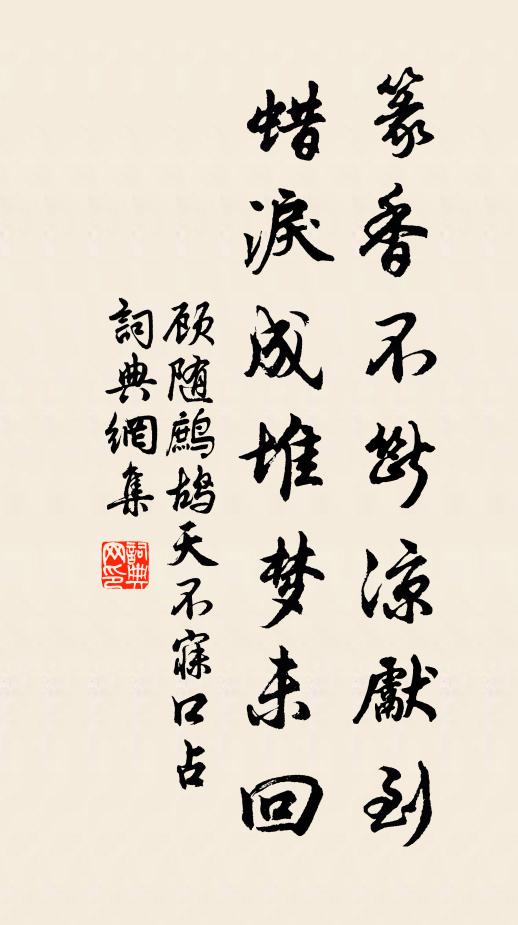 篆香不断凉獻到
蜡淚成堆梦未回
顾随鹧鸪天不寐口占
詞典網集
詞典网印